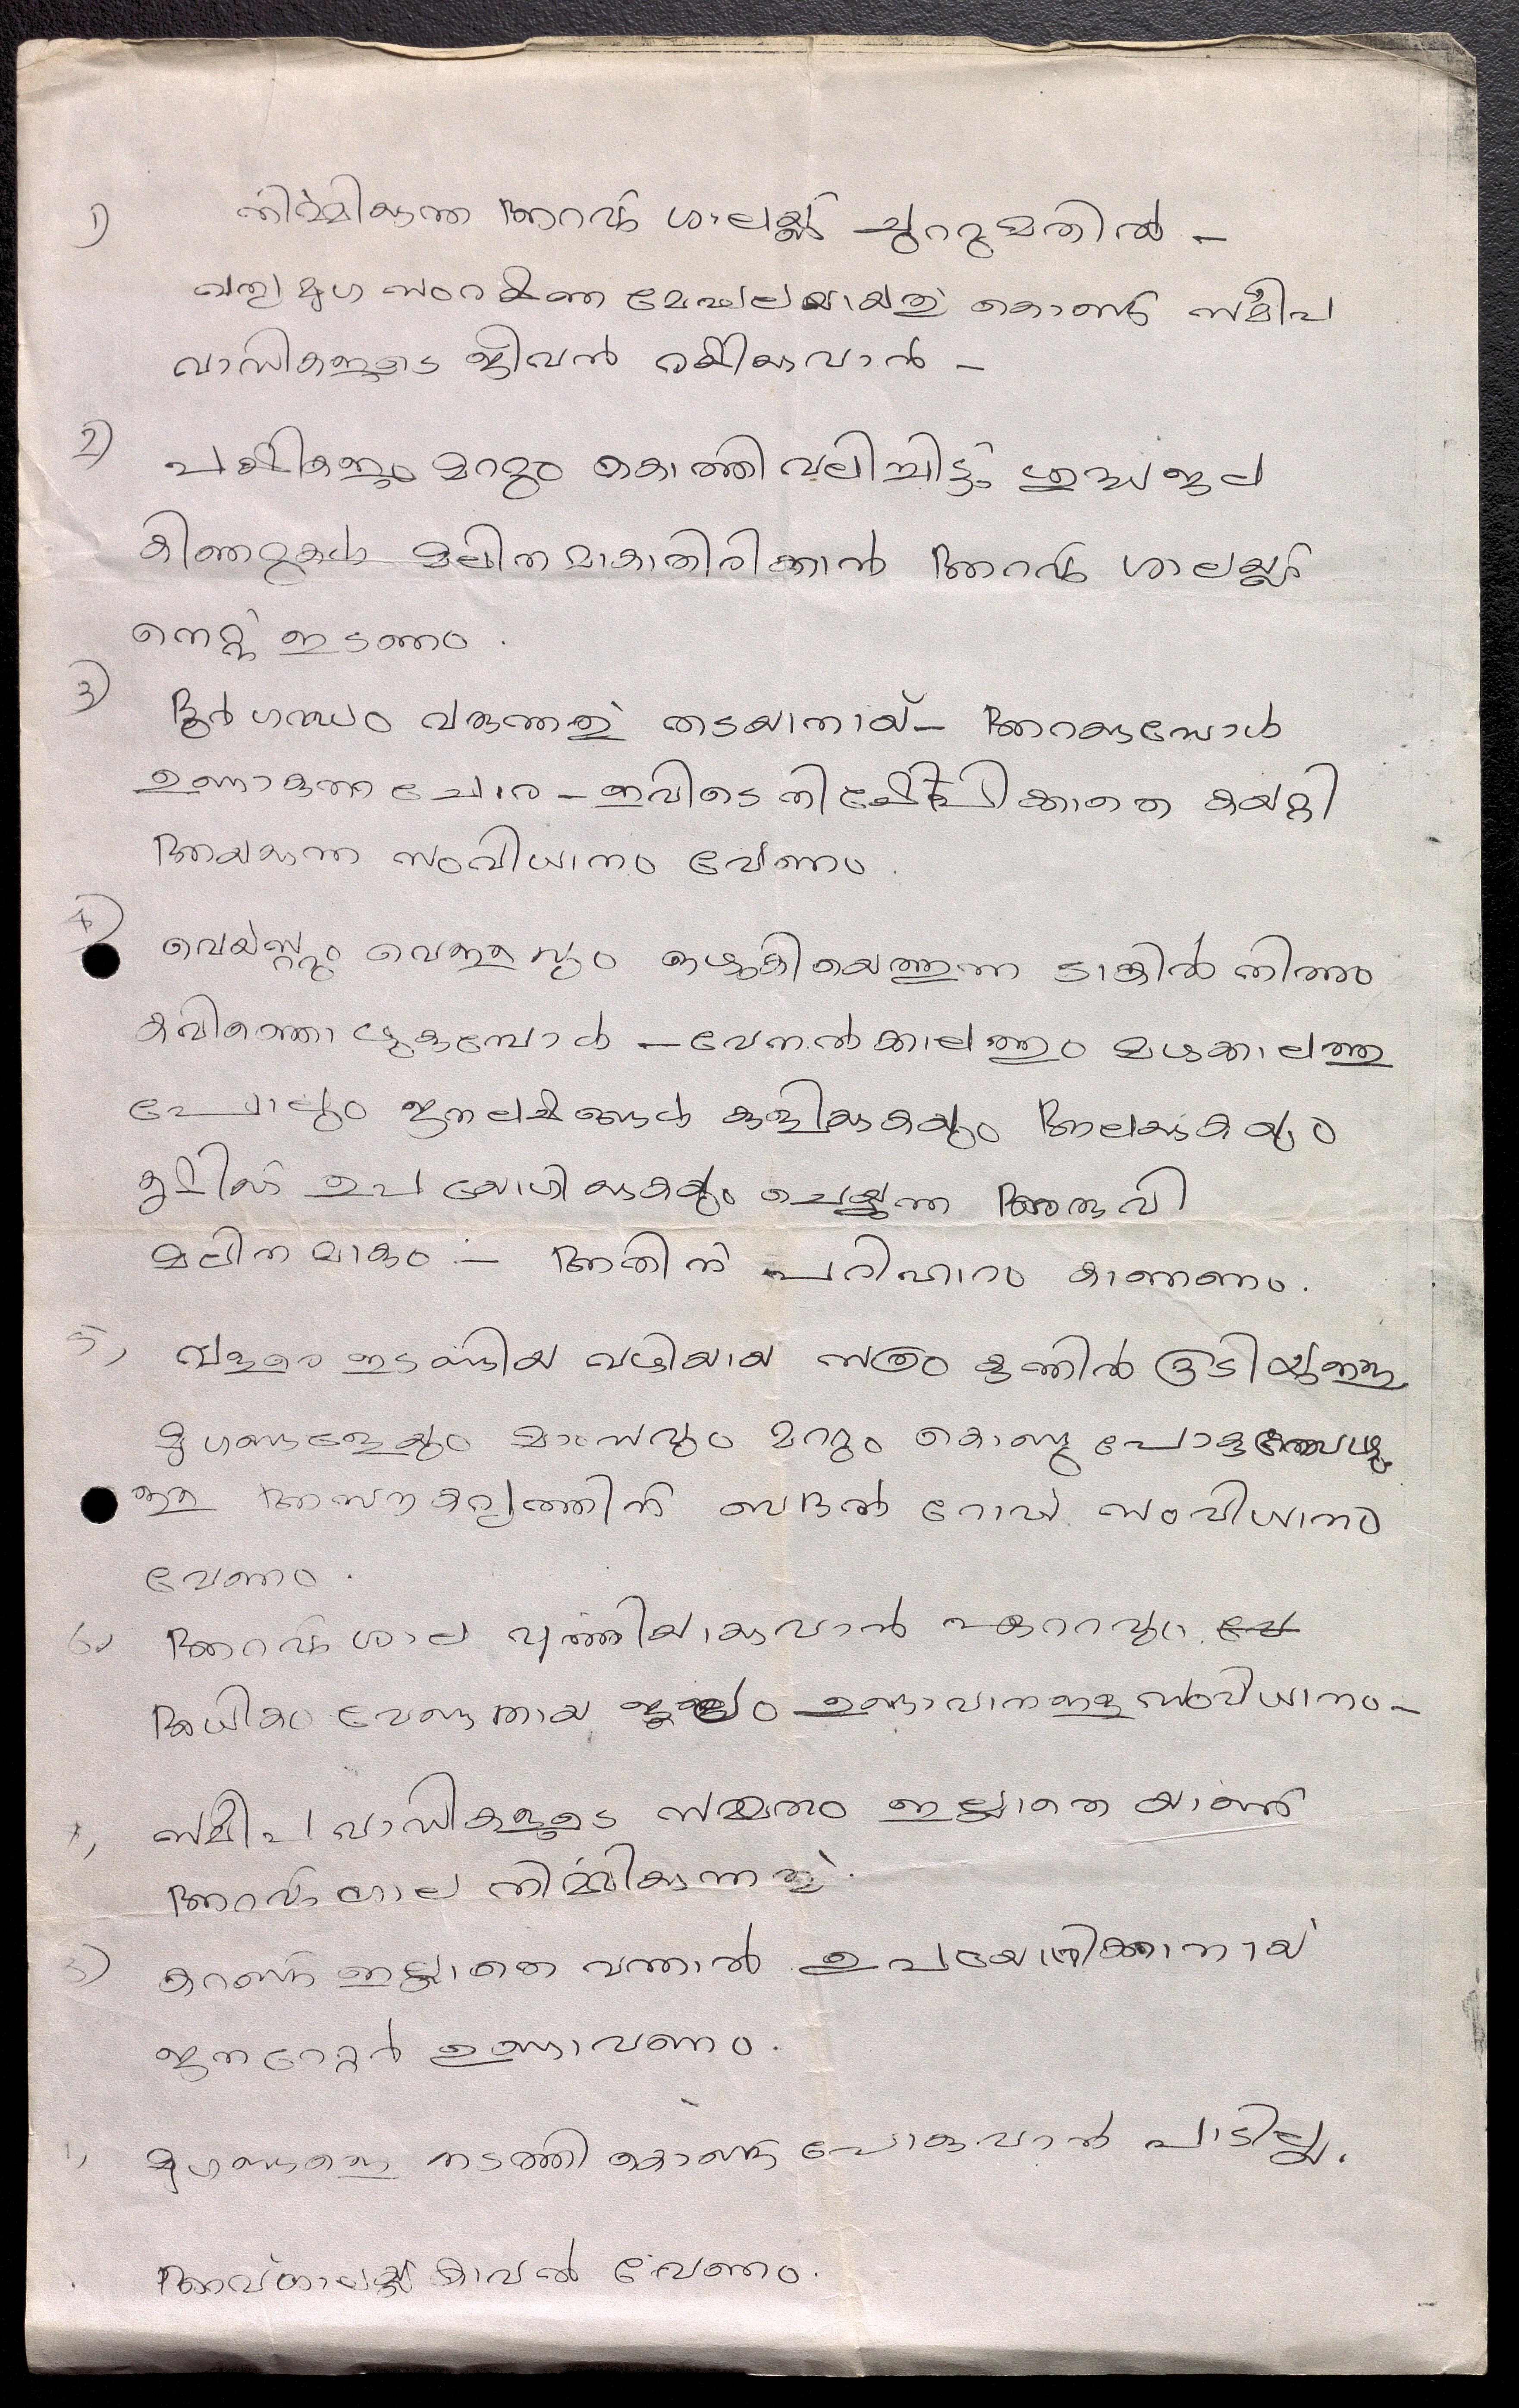 1) നിർമ്മിക്കുന്ന അറവ് ശാലയ്ക്ക് ചുററുമതിൽ –
വന്യമൃഗ സംരക്ഷണ മേഖലയായതു് കൊണ്ട് സമീപ
വാസികളുടെ ജീവൻ രക്ഷിക്കുവാൻ –
2) പക്ഷികളും മററും കൊത്തി വലിച്ചിട്ട് ശുദ്ധജല
കിണറുകൾ മലിനമാകാതിരിക്കാൻ അറവ് ശാലയ്ക്ക്
നെറ്റ് ഇടണം.
3) ദുർഗന്ധം വരുന്നതു് തടയാനായ് – അറക്കുമ്പോൾ
ഉണ്ടാകുന്ന ചോര – ഇവിടെ നിക്ഷേപിക്കാതെ കയറ്റി
അയക്കുന്ന സംവിധാനം വേണം.
4) വെയ്സ്റ്റും വെള്ളവും ഒഴുകിയെത്തുന്ന ടാങ്കിൽ നിന്നും
കവിഞ്ഞൊഴുകുമ്പോൾ – വേനൽക്കാലത്തും മഴക്കാലത്തു
പോലും ജനലക്ഷങ്ങൾ കുളിക്കുകയും അലക്കുകയും
കൃഷിയ്ക്ക് ഉപയോഗിക്കുകയും ചെയ്യുന്ന അരുവി
മലിനമാകും – അതിന് പരിഹാരം കാണണം.
5, വളരെ ഇടുങ്ങിയ വഴിയായ കുന്നിൽ കൂടിയുള്ള
മൃഗങ്ങളേയും മാംസവും മററും കൊണ്ടു പോകുമ്പോഴു
ള്ള അസൗകര്യത്തിന് ബദൽ റോഡ് സംവിധാനം
വേണം.
6, അറവ് ശാല വൃത്തിയാക്കുവാൻ ഏററവും
അധികം വേണ്ടതായ ജലം ഉണ്ടാവാനുള്ള സംവിധാനം –
7, സമീപ വാസികളുടെ സമ്മതം ഇല്ലാതെ യാണ്
അറവ് ശാല നിർമ്മിക്കുന്നതു്.
8) കറണ്ട് ഇല്ലാതെ വന്നാൽ ഉപയോഗിക്കാനായ്
ജനറേറ്റർ ഉണ്ടാവണം.
മൃഗങ്ങളെ നടത്തി കൊണ്ടു പോകുവാൻ പാടില്ല.
അറവ്ശാലയ്ക്ക് കാവൽ വേണം.